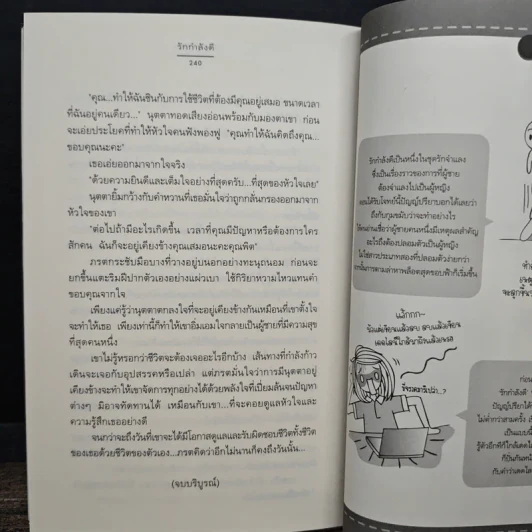 รักกำลังดี
240
"คุณ...ทำให้ฉันชินกับการใช้ชีวิตที่ต้องมีคุณอยู่เสมอ ขนาดเวลา
ที่ฉันอยู่คนเดียว..." นุตตาทอดเสียงอ่อนพร้อมกับมองตาเขา ก่อน
จะเอ่ยประโยคที่ทำให้หัวใจคนฟังพองฟู "คุณทำให้ฉันคิดถึงคุณ...
ขอบคุณนะคะ"
เธอเอ่ยออกมาจากใจจริง
"ด้วยความยินดีและเต็มใจอย่างที่สุดครับ...ที่สุดของหัวใจเลย"
นุตตายิ้มกว้างกับคำหวานที่เธอมั่นใจว่าถูกกลั่นกรองออกมาจาก
หัวใจของเขา
"ต่อไปถ้ามีอะไรเกิดขึ้น เวลาที่คุณมีปัญหาหรือต้องการใคร
สักคน ฉันก็จะอยู่เคียงข้างคุณเสมอนะคะคุณพิต"
ภรตกระชับมือบางที่วางอยู่บนอกอย่างทะนุถนอม ก่อนจะ
ยกขึ้นแตะริมฝีปากตัวเองอย่างแผ่วเบา ใช้กิริยาหวามไหวแทนคำ
ขอบคุณจากใจ
เพียงแค่รู้ว่านุตตาตกลงใจที่จะอยู่เคียงข้างกันเหมือนที่เขาตั้งใจ
จะทำให้เธอ เพียงเท่านี้ก็ทำให้เขาอิ่มเอมใจกลายเป็นผู้ชายที่มีความสุข
ที่สุดคนหนึ่ง
เขาไม่รู้หรอกว่าชีวิตจะต้องเจออะไรอีกบ้าง เส้นทางที่กำลังก้าว
เดินจะเจอกับอุปสรรคหรือเปล่า แต่ภรตมั่นใจว่าการมีนุตตาอยู่
เคียงข้างจะทำให้เขาจัดการทุกอย่างได้ด้วยพลังใจที่เปี่ยมล้นจนปัญหา
ต่างๆ มิอาจทัดทานได้ เหมือนกับเขา...ที่จะคอยดูแลหัวใจและ
ความรู้สึกเธออย่างดี
จนกว่าจะถึงวันที่เขาจะได้มีโอกาสดูแลและรับผิดชอบชีวิตทั้งชีวิต
ของเธอด้วยชีวิตของตัวเอง...ภรตคิดว่าอีกไม่นานก็คงถึงวันนั้น...
(จบบริบูรณ์)
รักกำลังดีเป็นหนึ่งในชุดรักจำแลง
ซึ่งเป็นเรื่องราวของการที่ผู้ชาย
ต้องจำแลงไปเป็นผู้หญิง
ตอนได้รับโจทย์นี้ปัญญ์ปรียาบอกได้เลยว่า
ถึงกับกุมขมับว่าจะทำอย่างไร
ให้คนอ่านเชื่อว่าผู้ชายคนหนึ่งมีเหตุผลสำคัญ
อะไรถึงต้องปลอมตัวเป็นผู้หญิง
ไม่ใช่สาวประเภทสองที่ปลอมตัวง่ายกว่า
ก่อน
รักกำลังดี
ปัญญ์ปรียาได้
ไม่ต่ำกว่าสามครั้ง
เป็นแบบนี้